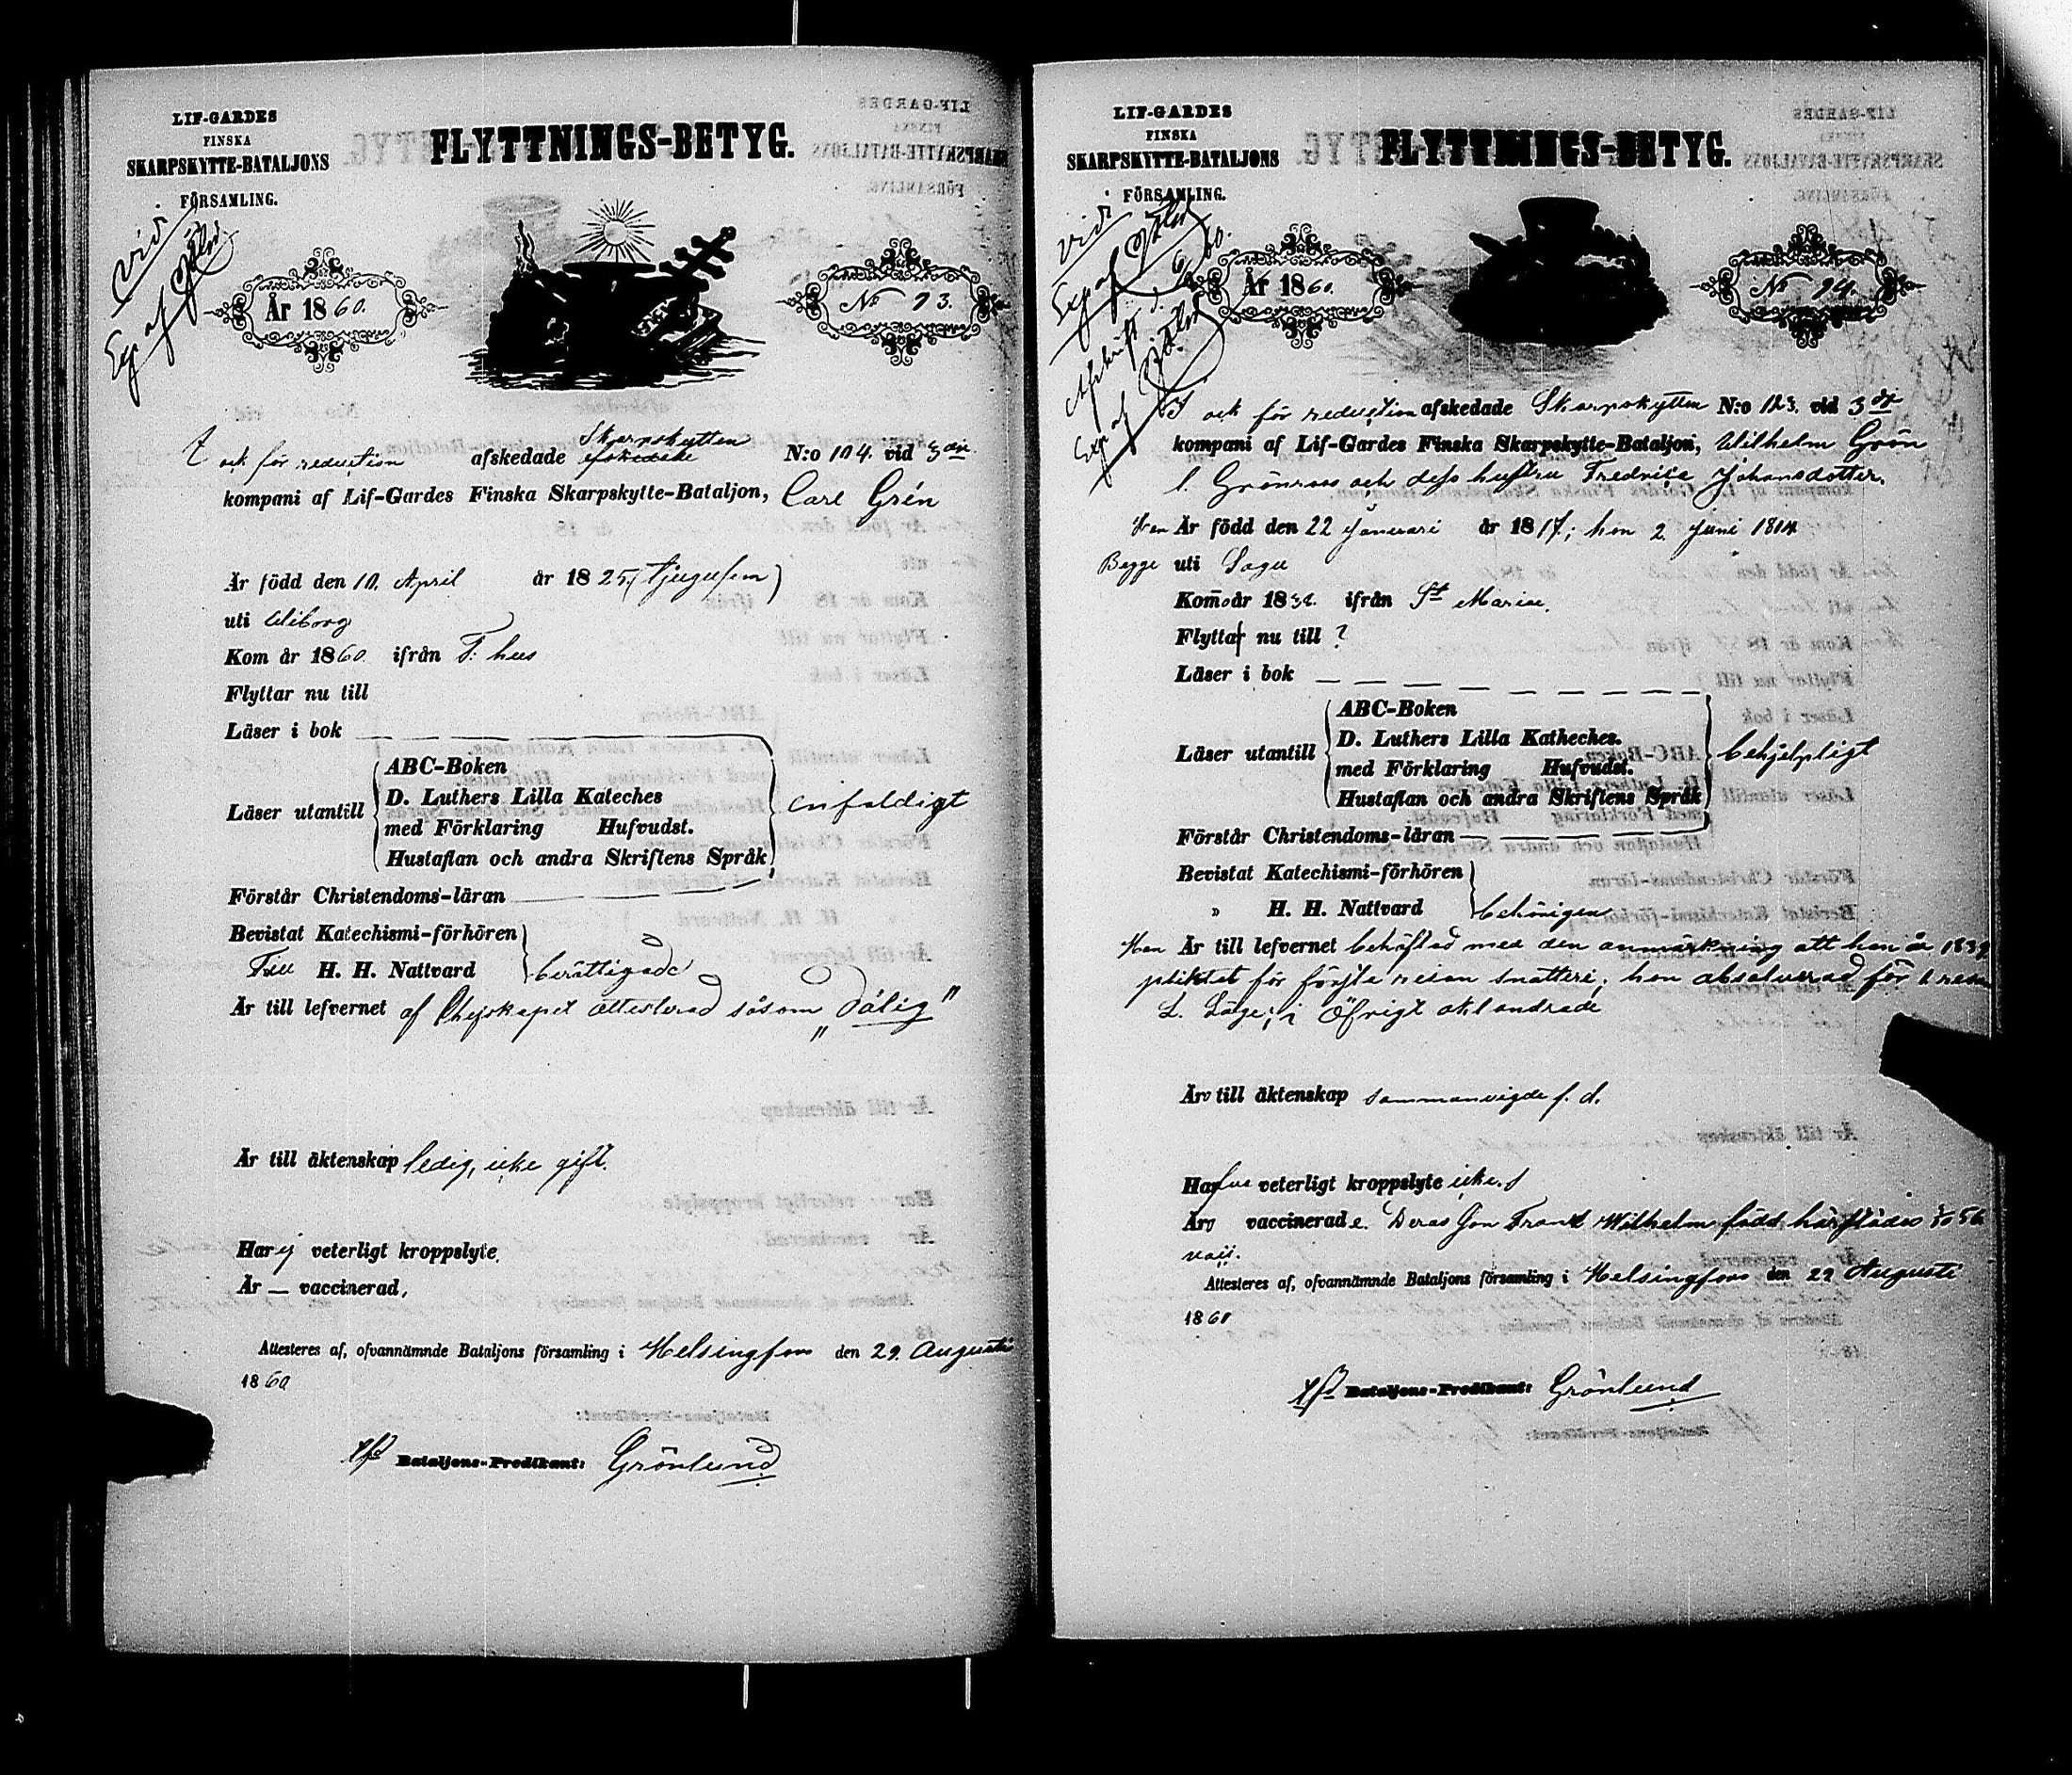 LIF-GARDES
FINSKA
SKARPSKYTTE-BATALJONS
FÖRSAMLING.
FLYTTNINGS-BETYG.
vid
Exp af
År 1860.
No 73.
och för reduction afskedade Skarpskytten N:o 104. vid 3die
kompani af Lif-Gardes Finska Skarpskytte-Bataljon, Carl Grén
Är född den 10. April år 1825 (tjugufem)
uti Wiborg
Kom år 1860 ifrån T: hus
Flyttar nu till
Läser i bok
Läser utantill
ABC-Boken
D. Luthers Lilla Kateches
med Förklaring Hufvudst.
Hustaflan och andra Skriftens Språk
enfaldigt
Förstår Christendoms-läran
Bevistat Katechismi-förhören
Till H. H. Nattvard berättigad
Är till lefvernet af Chefskapet attesterad såsom „dålig”
Är till äktenskap ledig, icke gift.
Har ej veterligt kroppslyte.
Är — vaccinerad,
Attesteres af, ofvannämnde Bataljons församling i Helsingfors den 29. Augusti
1860
Bataljons-Predikant: Grönlund
LIF-GARDES
FINSKA
SKARPSKYTTE-BATALJONS
FÖRSAMLING.
FLYTTNINGS-BETYG.
vid
Exp af
Afskrift
Exp af
År 1860.
No 74.
och för reduction afskedade Skarpskytten N:o 123. vid 3die
kompani af Lif-Gardes Finska Skarpskytte-Bataljon, Wilhelm Grön
l. Grönroos och dess hustru Fredrica Johansdotter.
Han Är född den 22 Januari år 1817; hon 2 Juni 1814
Begge uti Sagu
Komo år 1834. ifrån St Mariæ.
Flytta nu till ?
Läser i bok
Läser utantill
ABC-Boken
D. Luthers Lilla Katheches.
med Förklaring Hufvudst.
Hustaflan och andra Skriftens Språk
behjelpligt
Förstår Christendoms-läran
Bevistat Katechismi-förhören
„ H. H. Nattvard behörigen
Han Är till lefvernet behäftad med den anmärkning att han år 1839
pliktat för första resan snatteri; hon absolverad för 1 resan
L. Läge; i Öfrigt oklandrade
Äro till äktenskap sammanvigde f. d.
Hafva veterligt kroppslyte icke.
Äro vaccinerade. Deras Son Frans Wilhelm född härstädes 56
vacc.
Attesteres af, ofvannämnde Bataljons församling i Helsingfors den 29 Augusti
1860
Bataljons-Predikant: Grönlund